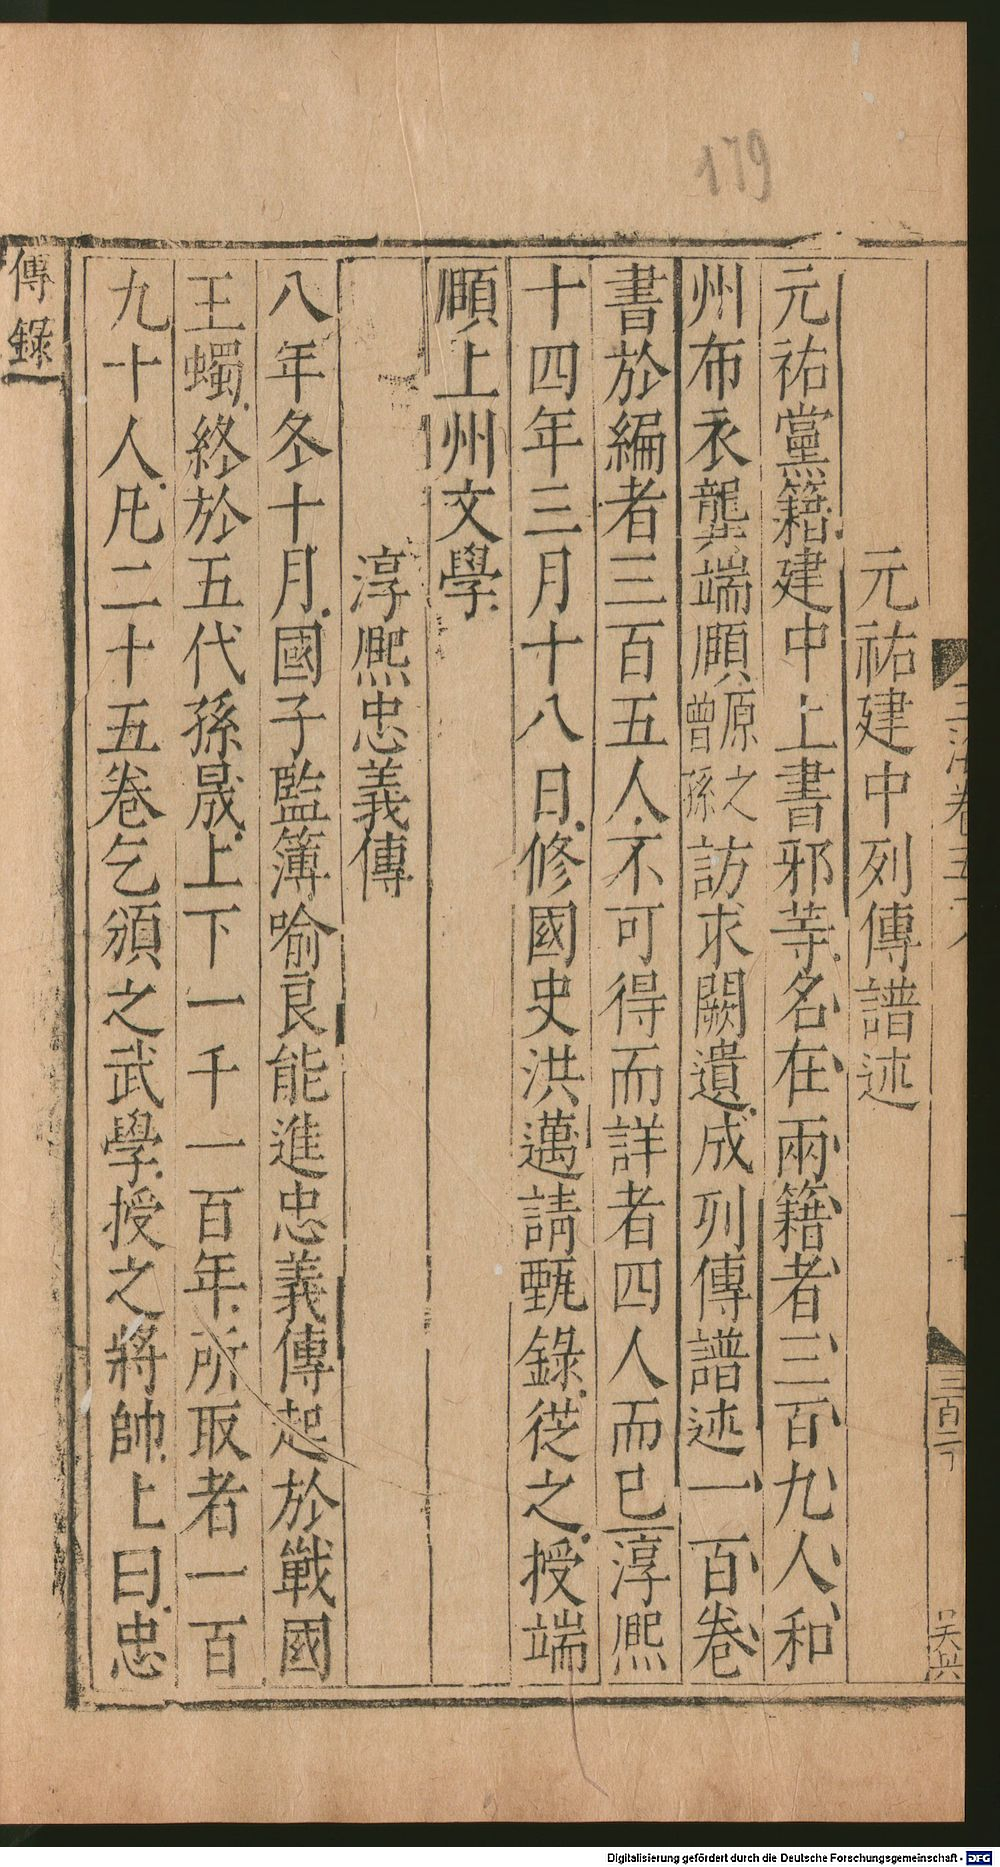 179
元祐建中列傳譜述
元祐黨籍建中上書邪等名在兩籍者三百九人和
州布衣龔端頤原之曾孫訪求闕遺成列傳譜述一百卷
書於編者三百五人不可得而詳者四人而已淳熙
十四年三月十八日修國史洪邁請甄錄從之授端
頤上州文學
淳熙忠義傳
八年冬十月國子監簿喻良能進忠義傳起於戰國
王蠋終於五代孫晟上下一千一百年所取者一百
九十人凡二十五卷乞頒之武學授之將帥上曰忠
傳錄
Digitalisierung gefördert durch die Deutsche Forschungsgemeinschaft - DFG